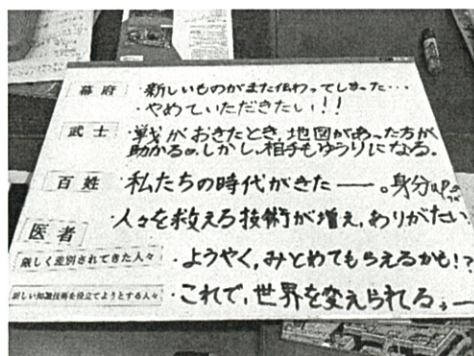 幕府 ・新しいものがまた伝わってしまった…
・やめていただきたい!!
武士 ・戦がおきたとき、地図があった方が
助かる。しかし、相手もゆうりになる。
百姓 ・私たちの時代がきたー。身分up
医者 ・人々を救える技術が増え、ありがたい
厳しく差別されてきた人々 ・ようやく、みとめてもらえるかも!?
新しい知識技術を役立てようとする人々 ・これで、世界を変えられる。